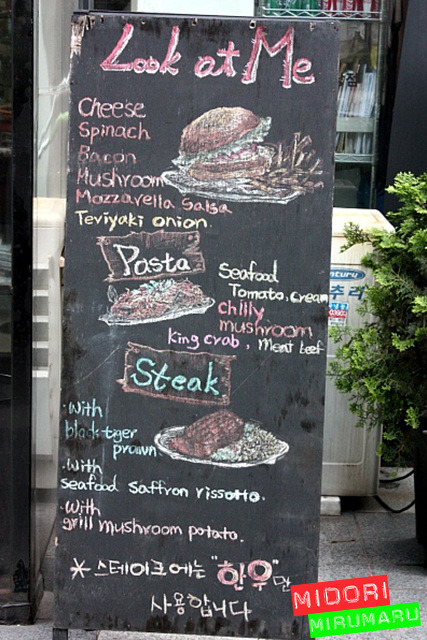 Look at Me
Cheese
Spinach
Bacon
Mushroom
Mozzarella Salsa
Teviyaki onion.
Pasta
Seafood
Tomato. cream
chilly
mushroom
king crab, meat beef
Steak
·With
black-tiger
prawn
·With
seafood Saffron rissotto.
·With
grill mushroom potato.
* 스테이크에는 "한우"만
사용합니다
MIDORI
MIRUMARU